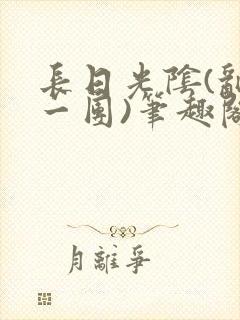 長日光陰(亂
一團)筆趣閣
月離爭